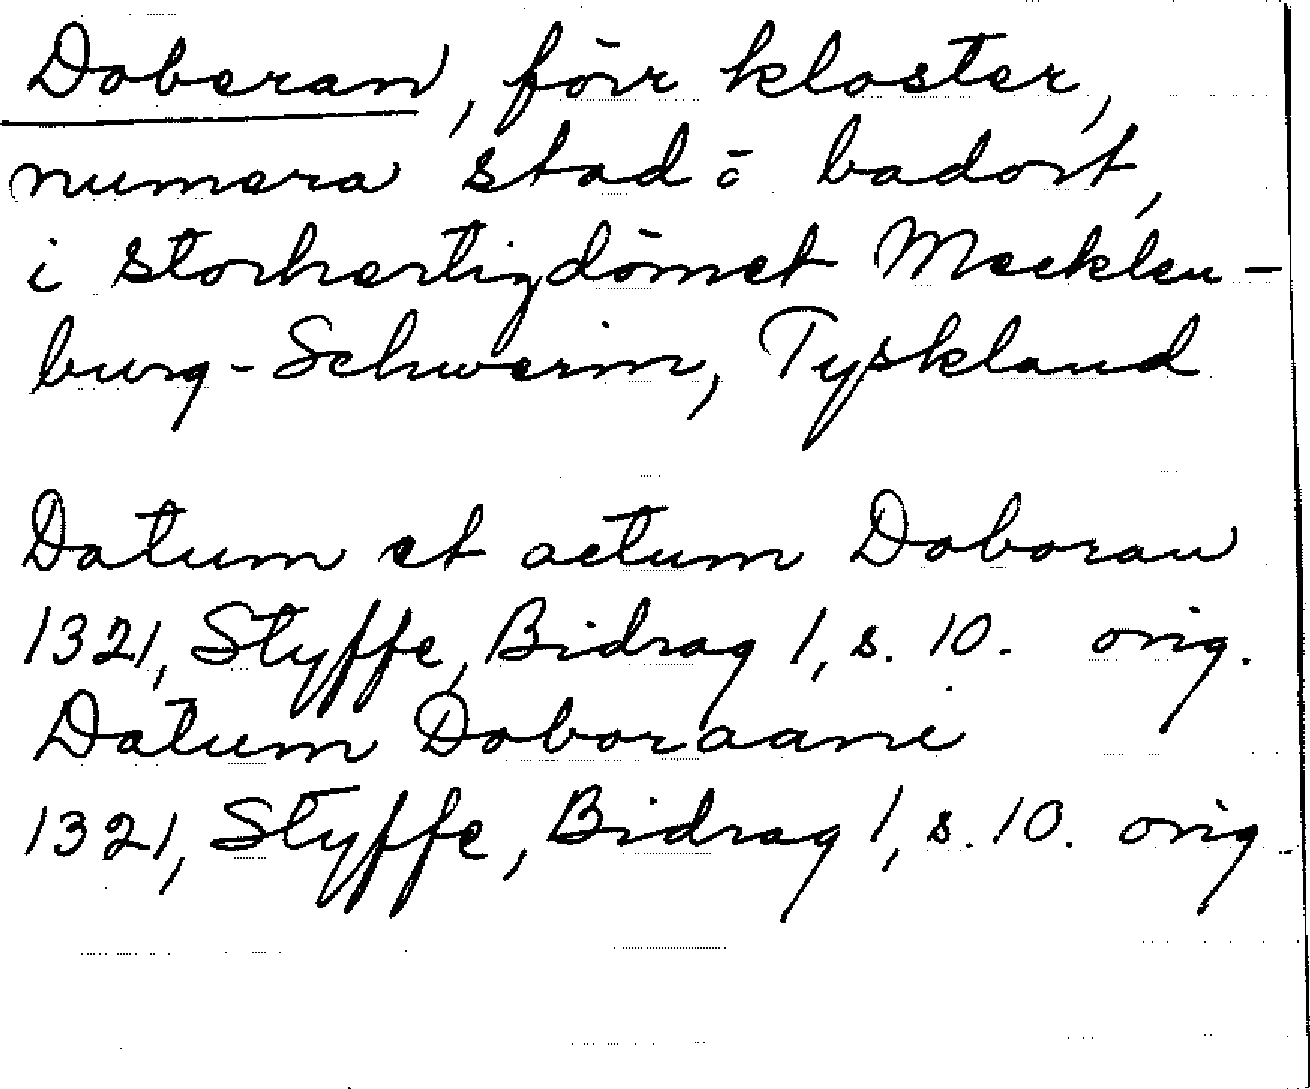 Doberan, förr kloster,
numera stad o badort,
i storhertigdömet Mecklen-
burg-Schwerin, Tyskland
Datum et actum Doboran
1321, Styffe, Bidrag 1, s. 10. orig.
Datum Doboraane
1321, Styffe, Bidrag 1, s. 10. orig.